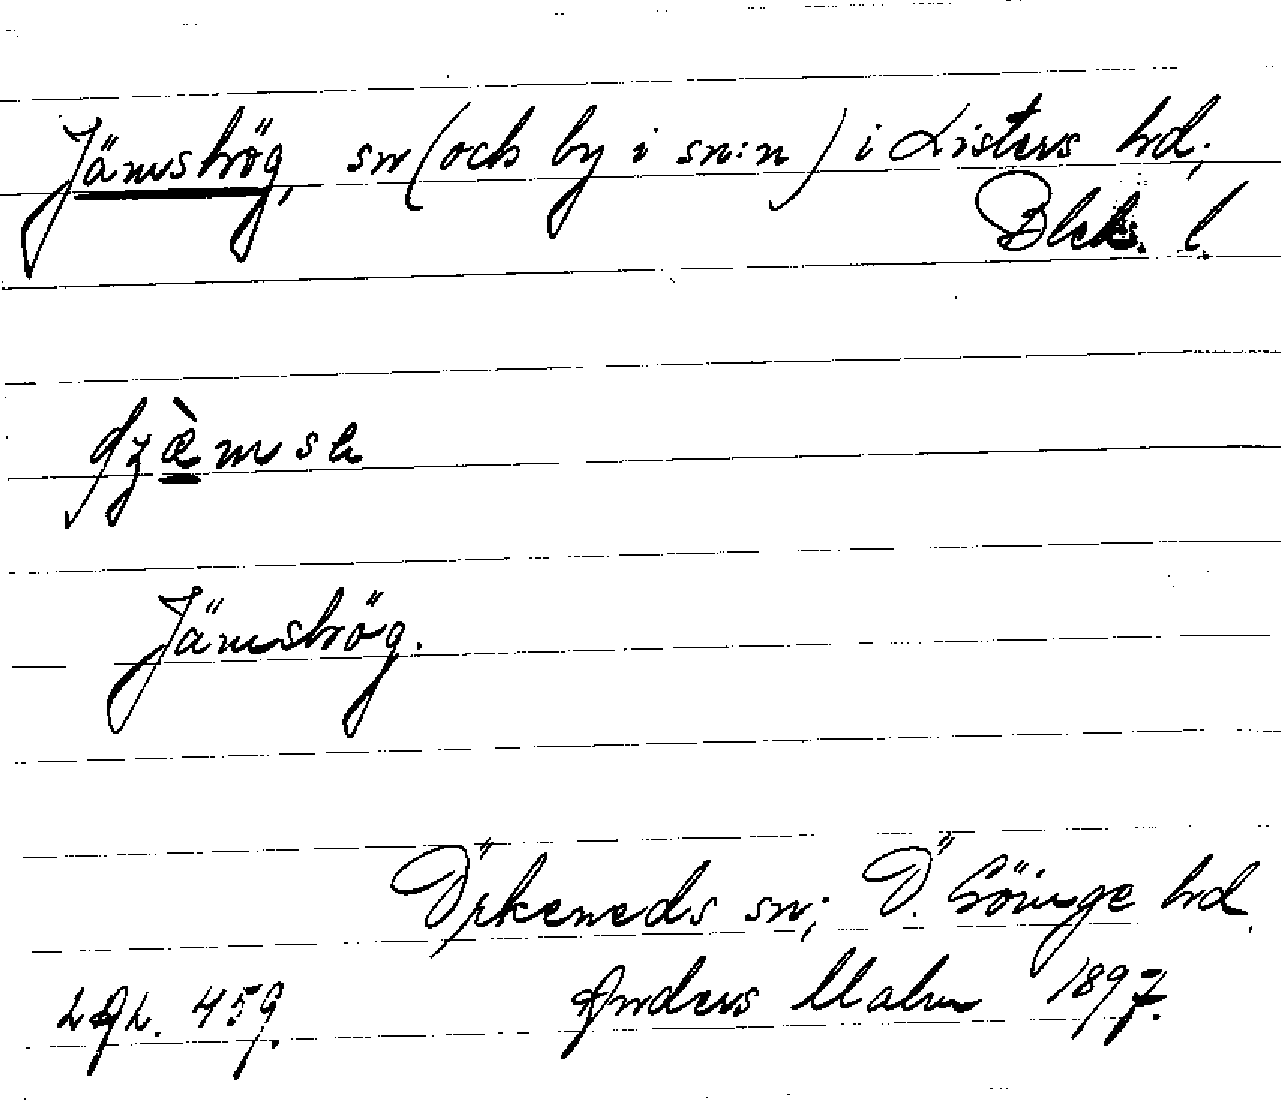 Jämshög, sn (och by i sn:n) i Listers hd,
Blek. l.
Jämshög.
Örkeneds sn; Ö. Göinge hd.
459. Anders Malm 1897.